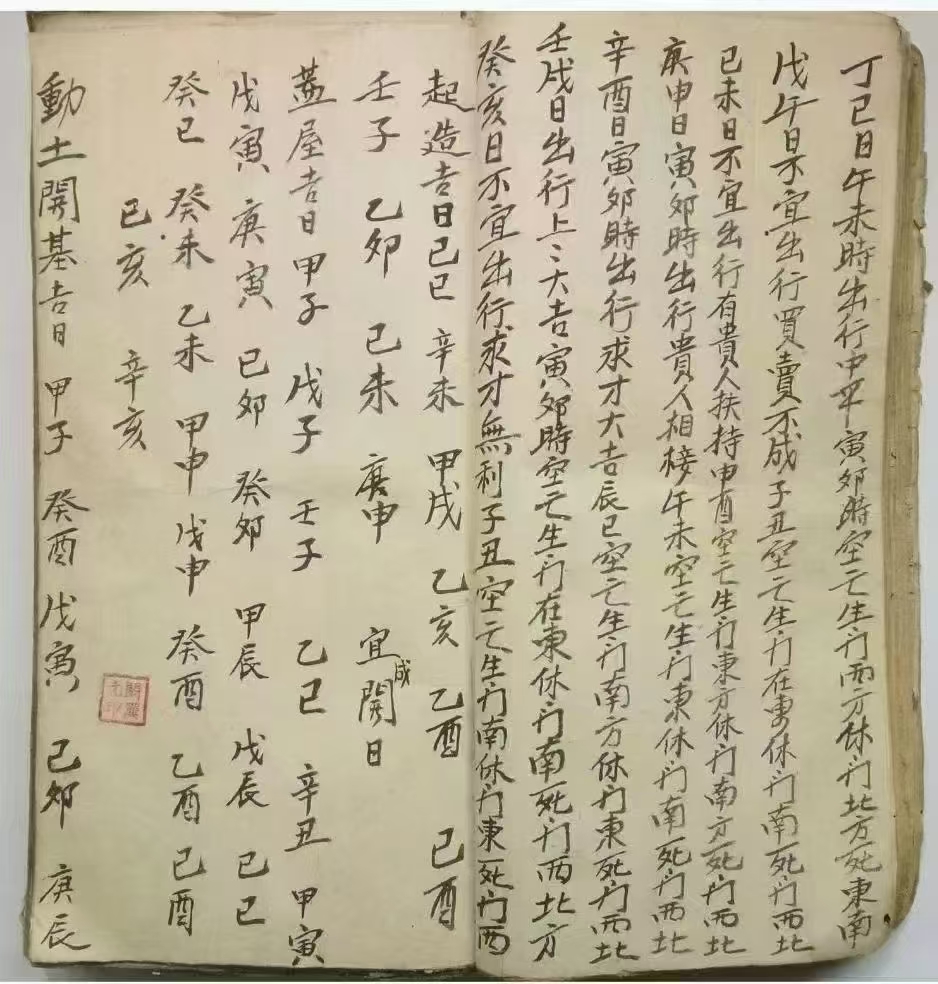 丁巳日午未時出行中平寅夘時空亡生门西方休门北方死東南
戊午日不宜出行買賣不成子丑空亡生门在東休门南死门西北
己未日不宜出行有貴人扶持申酉空亡生门東方休门南方死门西北
庚申日寅夘時出行貴人相接午未空亡生门東休门南死门西北
辛酉日寅夘時出行求才大吉辰巳空亡生门南方休门東死门西北
壬戌日出行上上大吉寅夘時空亡生门在東休门南死门西北方
癸亥日不宜出行求才無利子丑空亡生门南休门東死门西
起造吉日己巳 辛未 甲戌 乙亥 乙酉 己酉
壬子 乙夘 己未 庚申 宜成開日
蓋屋吉日甲子 戊子 壬子 乙巳 辛丑 甲寅
戊寅 庚寅 己夘 癸夘 甲辰 戊辰 己巳
癸巳 癸未 乙未 甲申 戊申 癸酉 乙酉 己酉
己亥 辛亥
動土開基吉日 甲子 癸酉 戊寅 己夘 庚辰